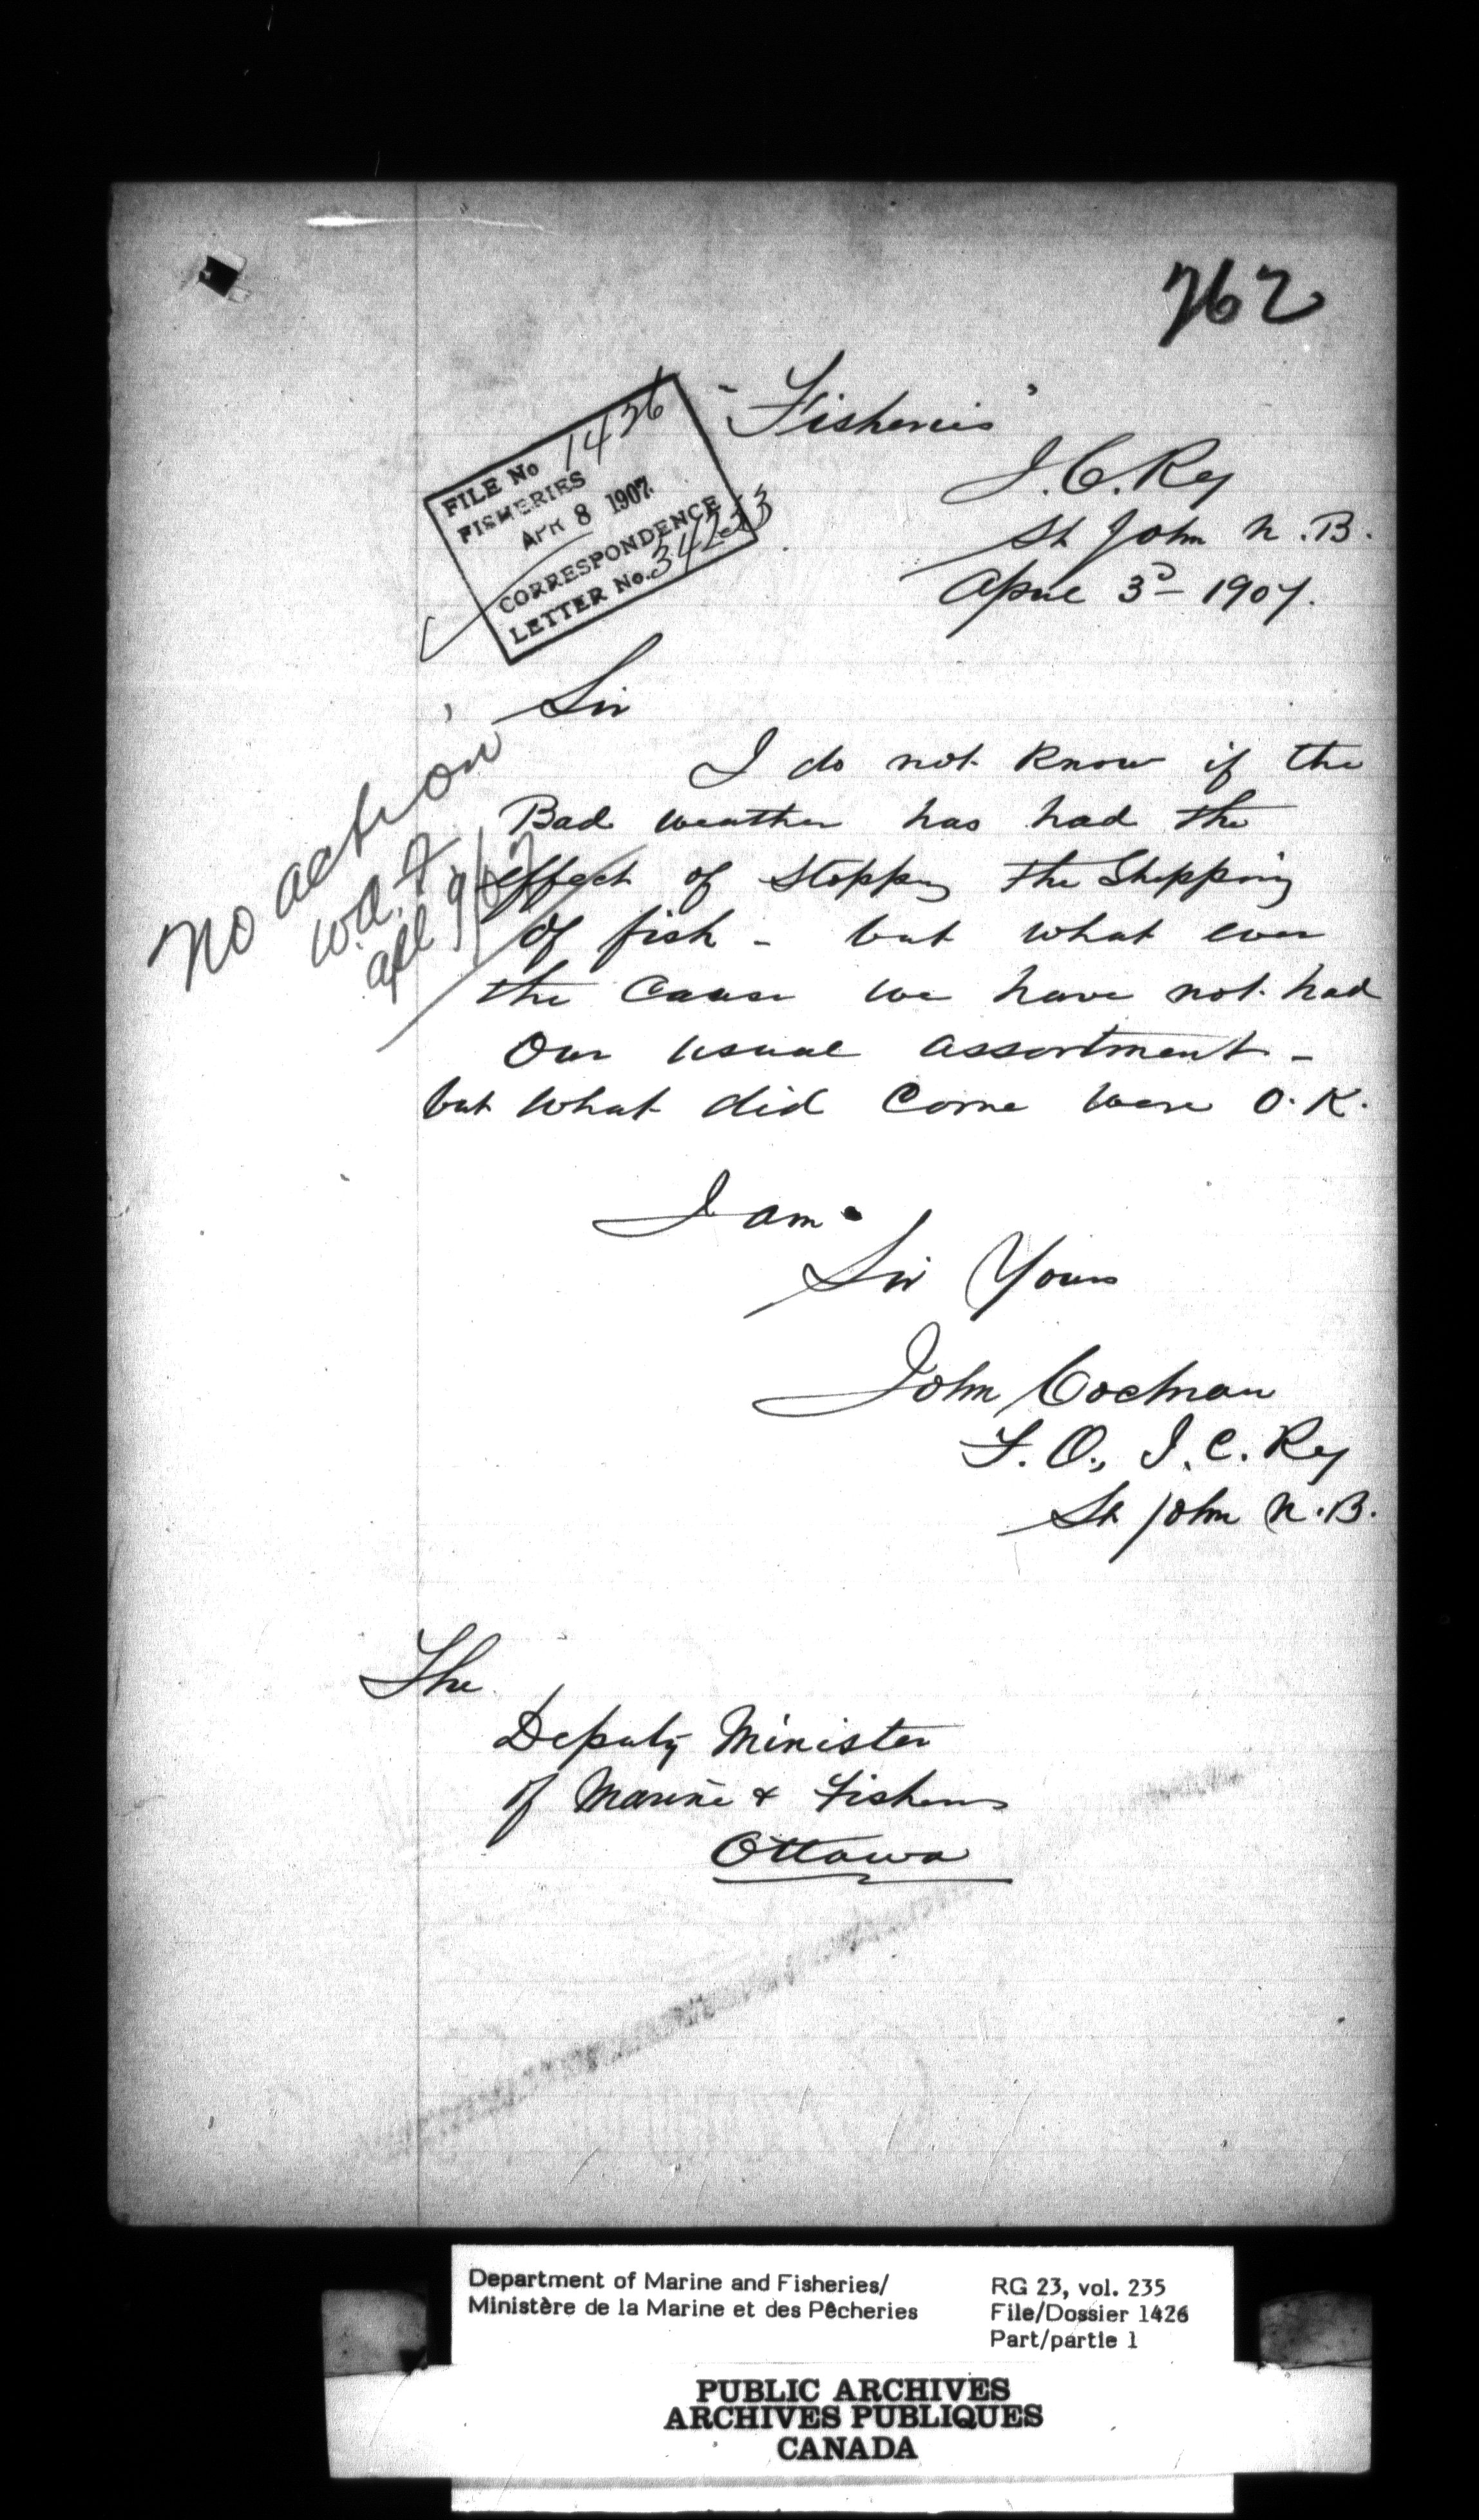 762
"Fisheries"
FILE No 1426
FISHERIES
APR 8 1907
CORRESPONDENCE
LETTER No. 34253
I. C. Ry
St John N. B.
April 3d 1907.
Sir
No action
W.A.F.
apl 9/07
I do not know if the
Bad weather has had the
effect of stopping the shipping
of fish - but what ever
the Cause we have not had
Our usual assortment -
but what did Come were O. K.
I am
Sir Yours
John Cochran
F. O., I. C. Ry
St John N. B.
The
Deputy Minister
of Marine & Fisheries
Ottawa
Department of Marine and Fisheries/
Ministère de la Marine et des Pêcheries
RG 23, vol. 235
File/Dossier 1426
Part/partie 1
PUBLIC ARCHIVES
ARCHIVES PUBLIQUES
CANADA